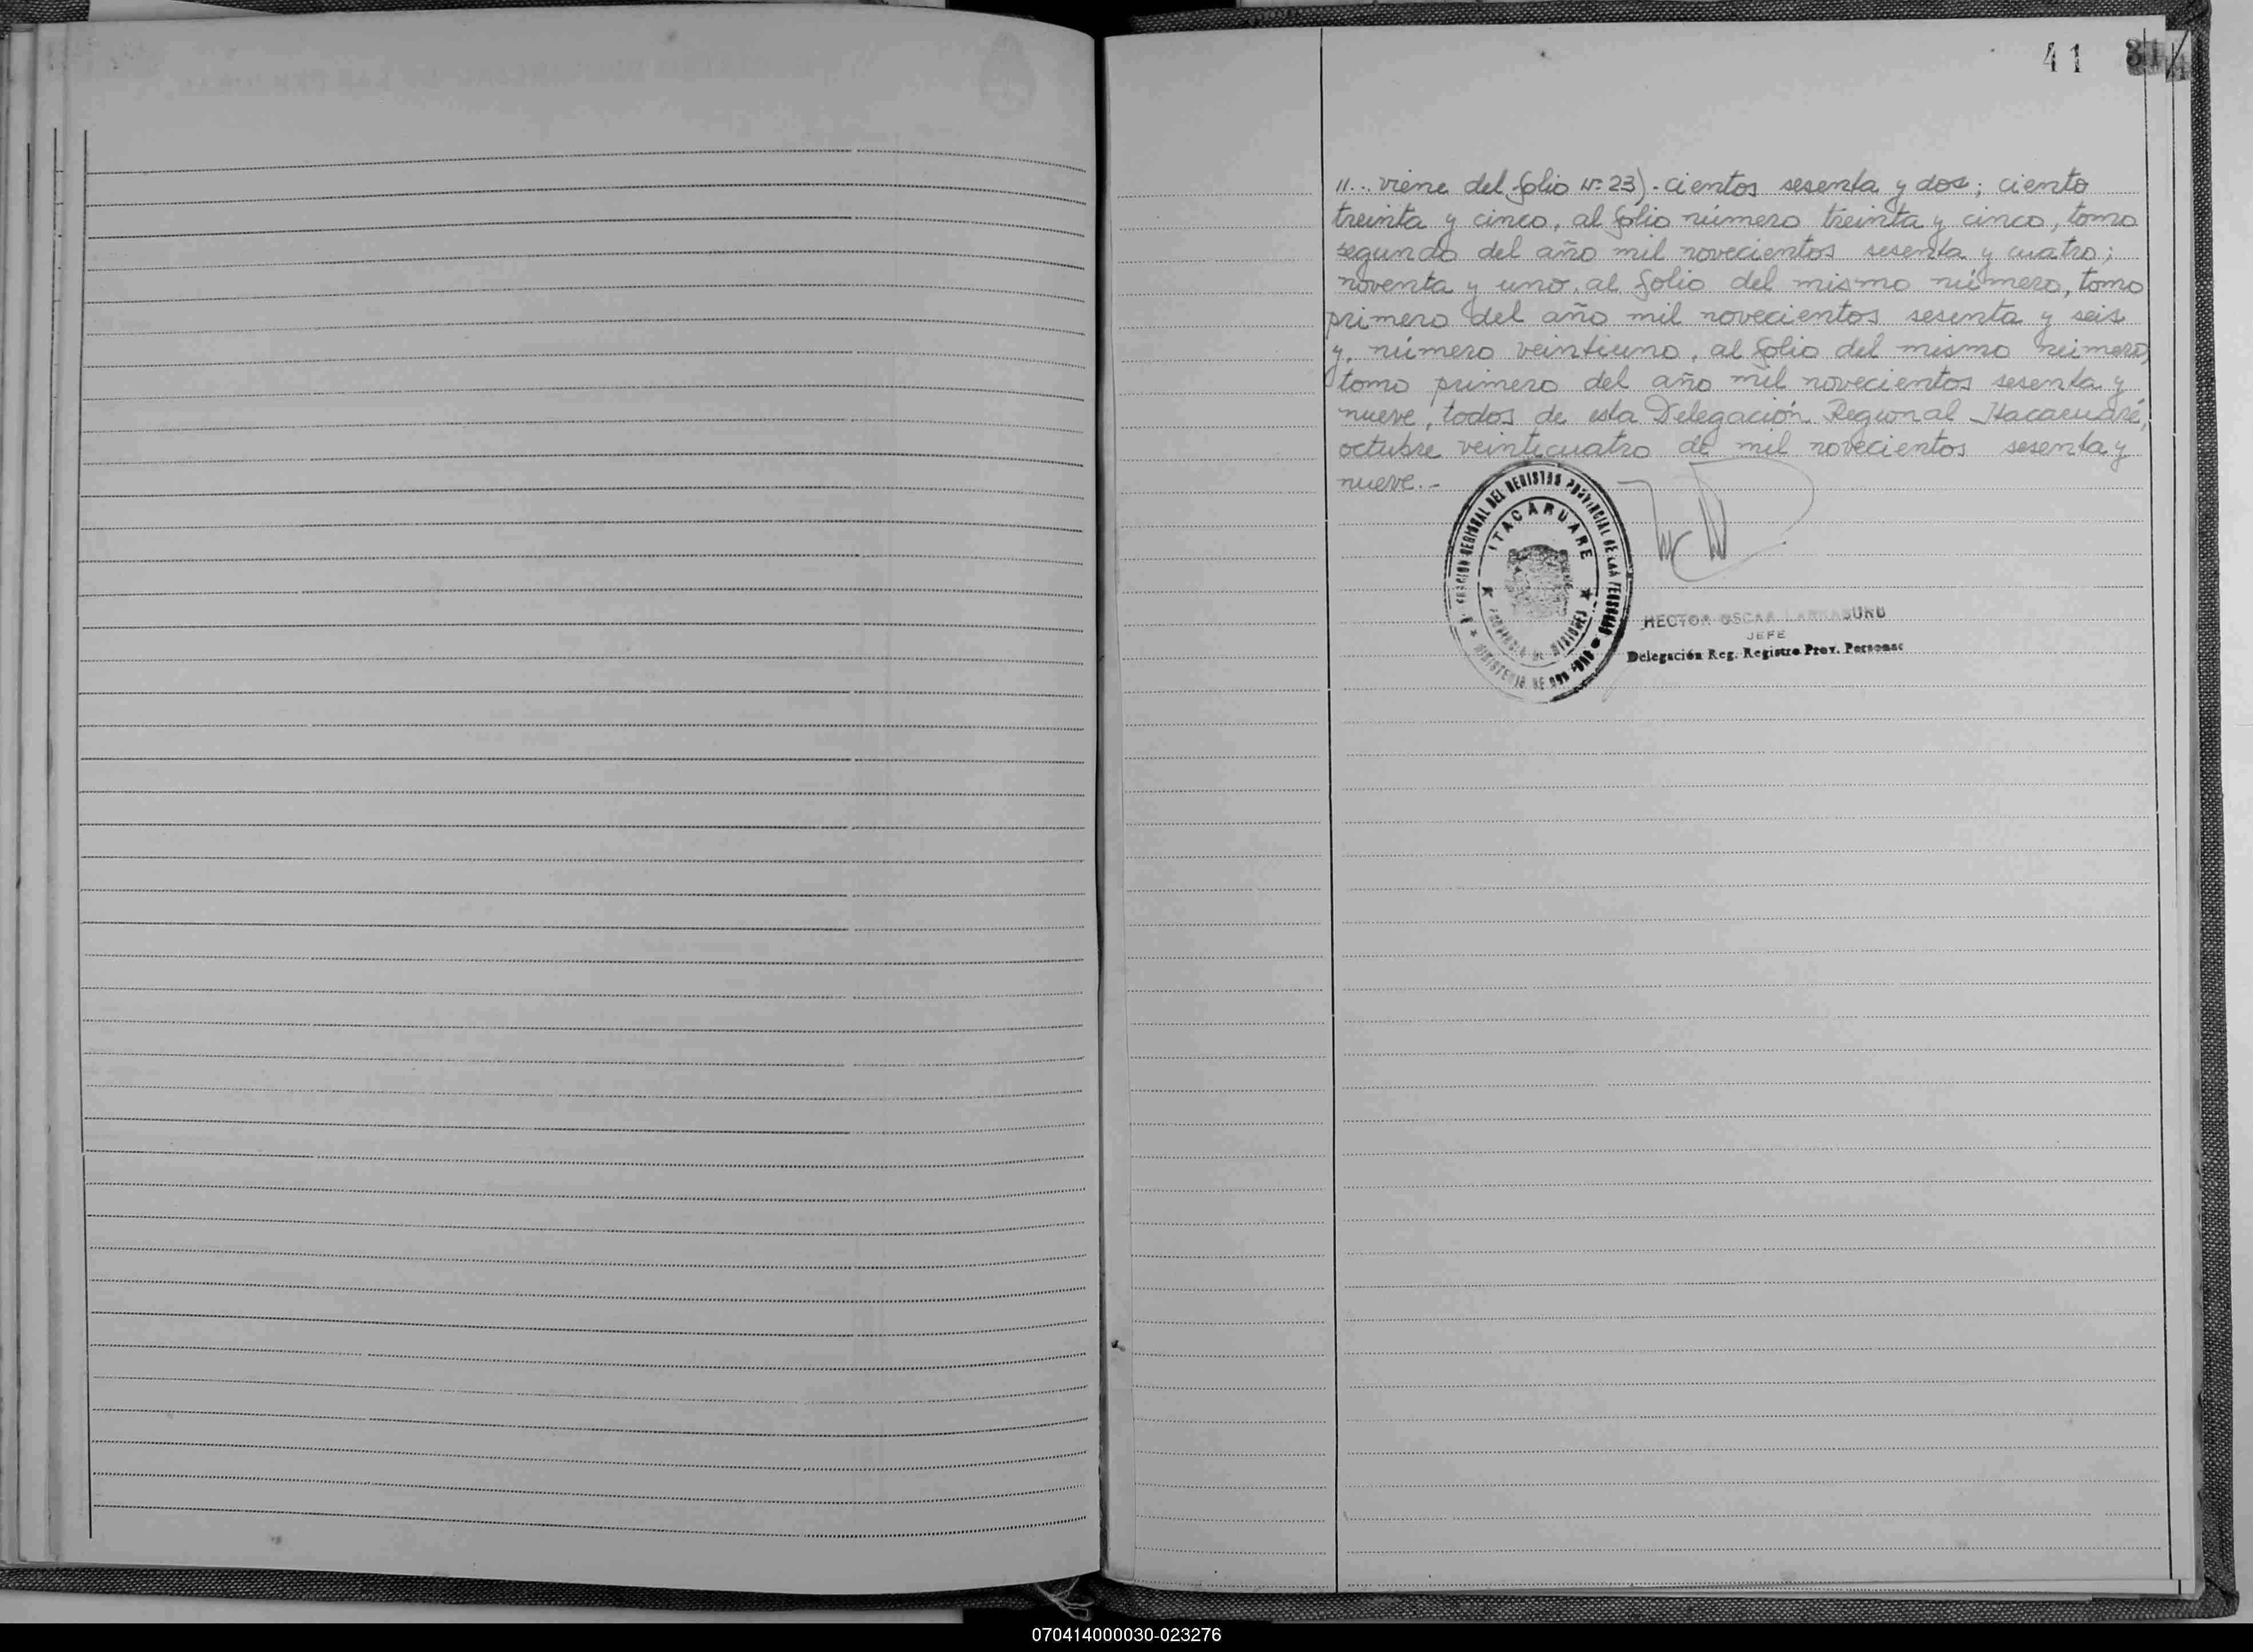 41
11... viene del folio Nº 23).- cientos sesenta y dos; ciento
treinta y cinco, al folio número treinta y cinco, tomo
segundo del año mil novecientos sesenta y cuatro;
noventa y uno, al folio del mismo número, tomo
primero del año mil novecientos sesenta y seis
y, número veintiuno, al folio del mismo número,
tomo primero del año mil novecientos sesenta y
nueve, todos de esta Delegación Regional Itacaruaré,
octubre veinticuatro de mil novecientos sesenta y
nueve.-
REGIONAL DEL REGISTRO PROVINCIAL DE LAS PERSONAS
ITACARUARE
PROVINCIA DE MISIONES
MINISTERIO DE
HECTOR OSCAR
JEFE
Delegación Reg. Registro Prov. Personas
070414000030-023276